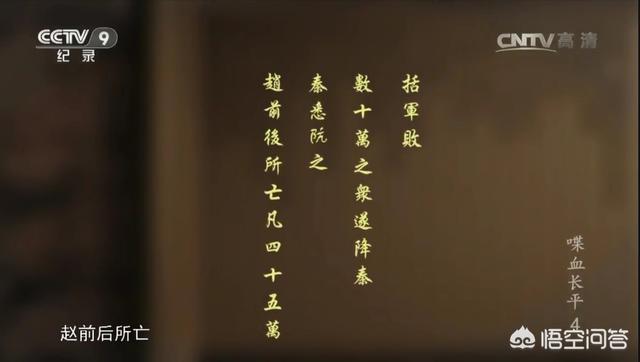 CCTV 9
纪录
CNTV高清
括軍敗
數十萬之衆遂降秦
秦悉阬之
趙前後所亡凡四十五萬
喋血长平 4
赵前后所亡
悟空问答